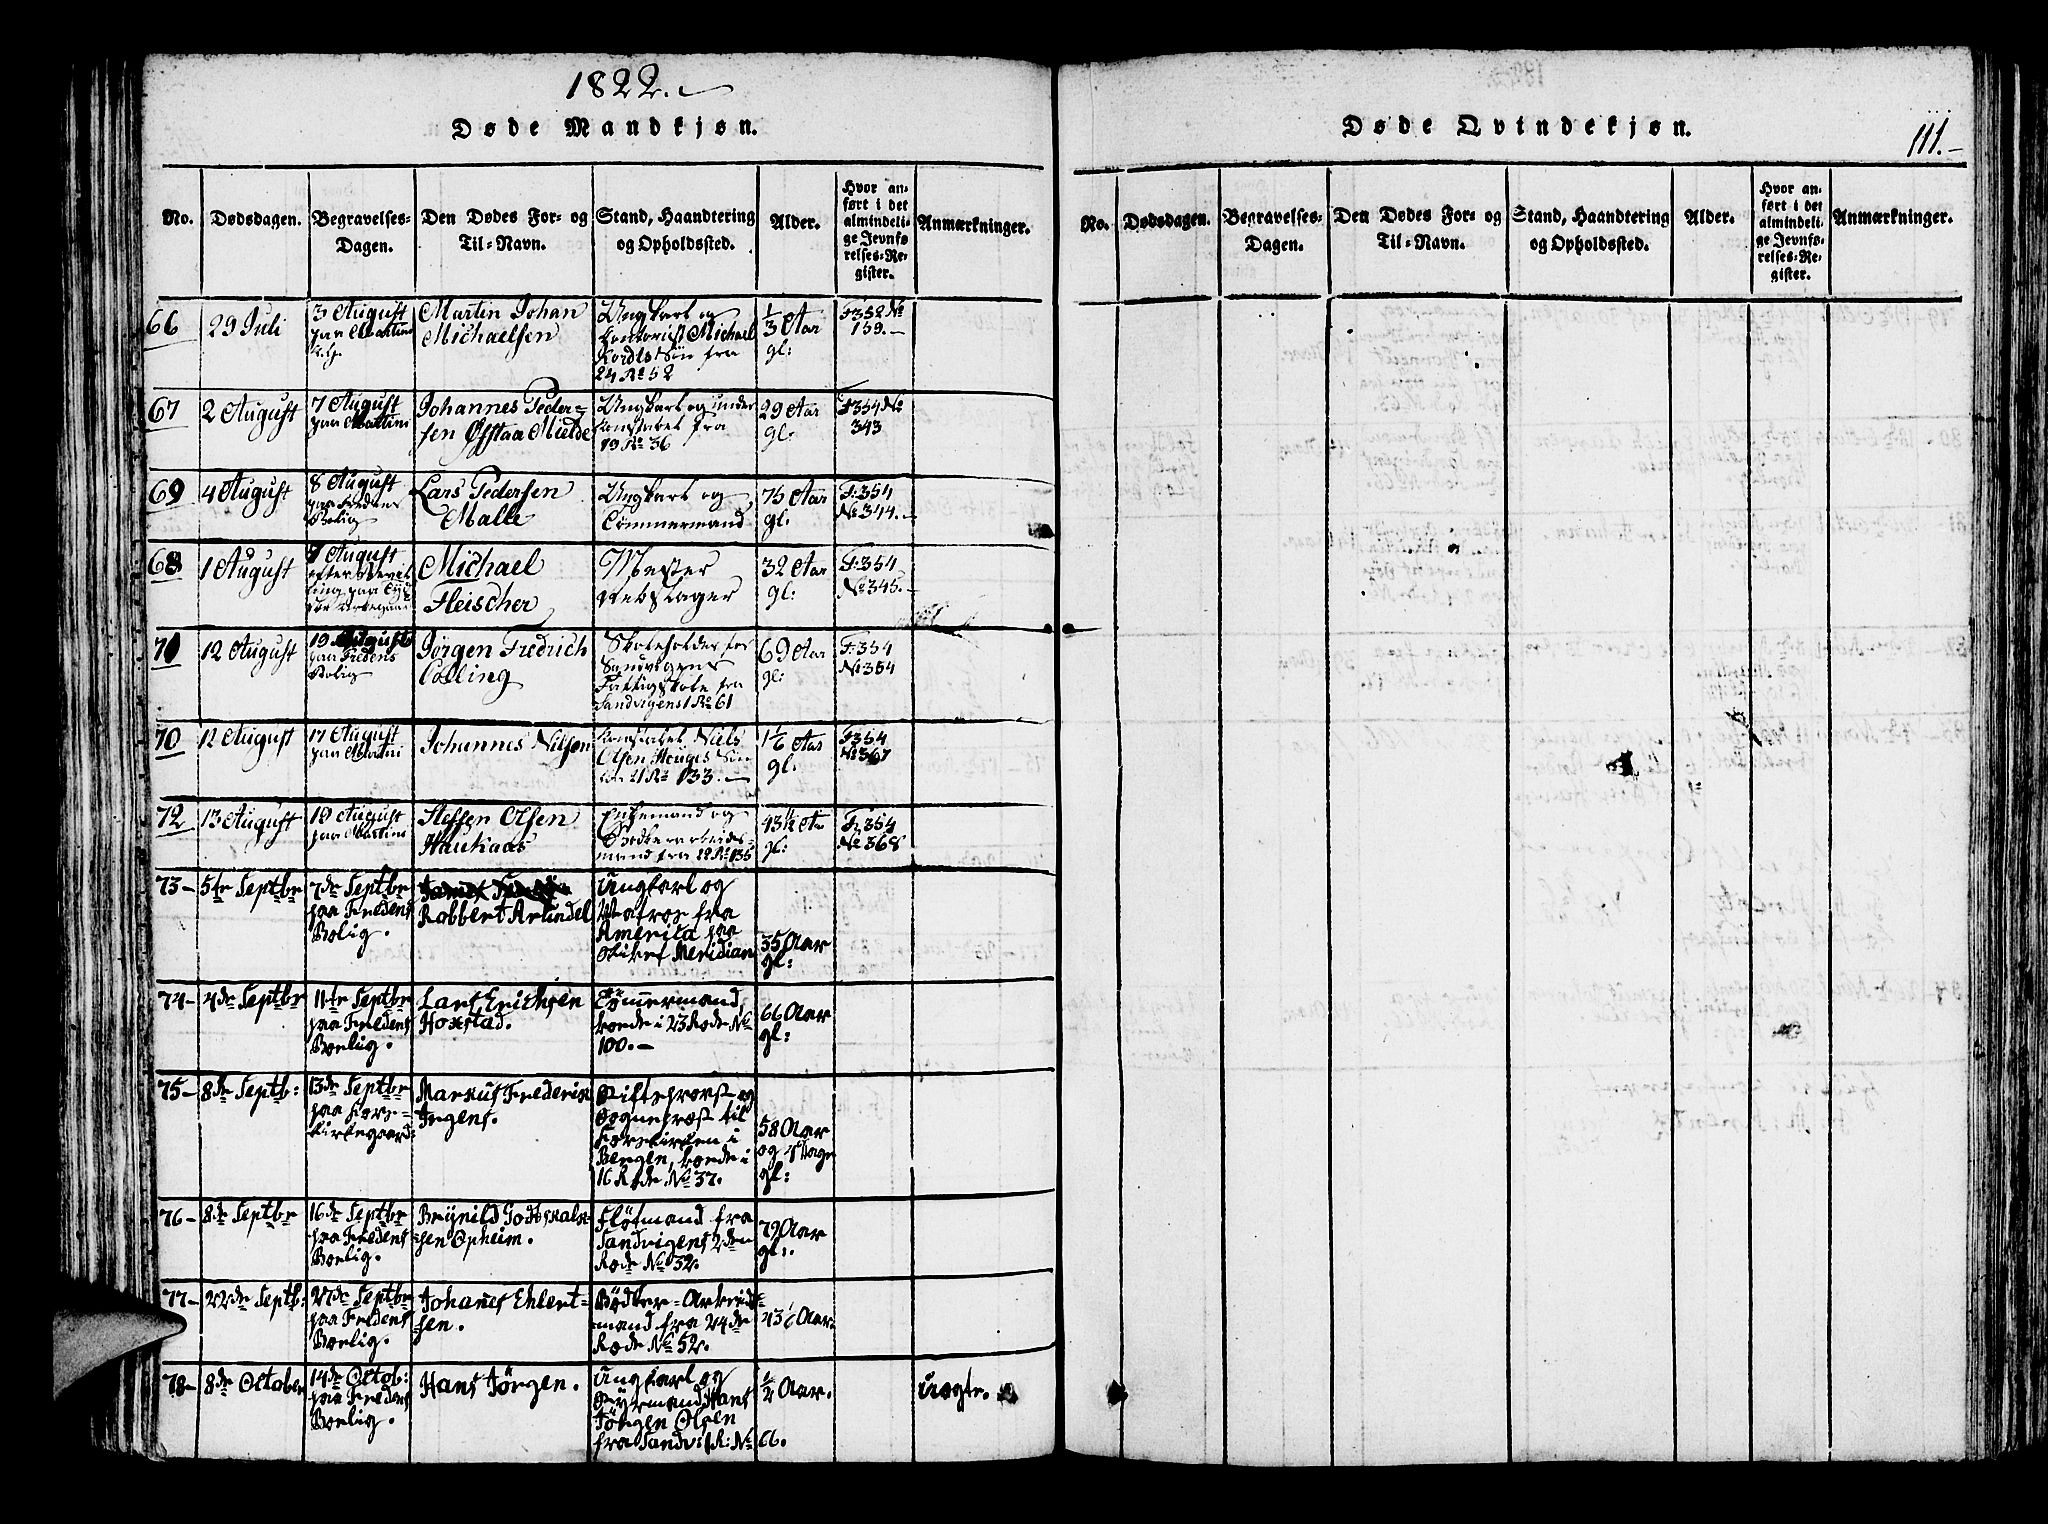 1822.
Døde Mandkjøn.
No.
Dødsdagen.
Begravelses-
Dagen.
Den Dødes For- og
Til-Navn.
Stand, Haandtering
og Opholdssted.
Alder.
Hvor an-
ført i det
almindeli-
ge Jevnfø-
relses-Re-
gister.
Anmærkninger.
66
29 Juli
3 August
paa Martini
Martin Johan
Michaelsen
Ungkarl og
Contorist Michael
Kordts Søn fra
24 R № 52
1/3 Aar
gl:
F 352 №
159.-
67
2 August
7 August
paa Martini
Johannes Peder-
sen Øfstaa Mielde
Ungkarl og under
Constabel fra
19 R № 36
29 Aar
gl:
F 354 №
343
69
4 August
8 August
paa Fredens
Bolig
Lars Pedersen
Malle
Ungkarl og
Tømmermand
75 Aar
gl:
F: 354
№ 344.-
68
1 August
7 August
Michael
Fleischer
Mester
Rebslager
32 Aar
gl:
F: 354
№ 345.-
71
12 August
19 August
paa Fredens
Bolig
Jørgen Fredrich
Colling
Skoleholder for
Sandvigens
Fattigskole fra
Sandvigens 1 R № 61
69 Aar
gl:
F: 354
№ 364
70
12 August
17 August
paa Martini
Johannes Nilsen
Constabel Niels
Olsen Houges Søn
fra 21 R № 133.-
1 1/6 Aar
gl:
F: 354
№ 367
72
13 August
19 August
paa Martini
Steffen Olsen
Haukaas
Enkemand og
Bødkerarbeids-
mand fra 22 R № 135
43 1/2 Aar
gl:
F: 354
№ 368
73-
5te Septbr
7de Septbr
paa Fredens
Bolig.
Robbert Arundel
Ungkarl og
Matros fra
America paa
Skibet Meridian
35 Aar
gl:
74-
4de Septbr
11te Septbr
paa Fredens
Boelig.
Lars Erichsen
Hoxstad.
Tømmermand,
boede i 23 Rode №
100.-
66 Aar
gl:
75-
8de Septb:
13de Septbr
paa Kors-
kirkegaard
Markus Frederik
Irgens.
Stiftsprovst og
Sogneprest til
Korskirken i
Bergen, boede i
16 Rode № 37.
58 Aar
og 4 Dage
gl:
76-
8de Septbr
16de Septbr
paa Fredens
Boelig.
Brynild Godtskalk-
sen Opheim.
Fløtmand fra
Sandvigens 2den
Rode № 32.
79 Aar
gl:
77-
22de Septb:
27de Septbr
paa Fredens
Boelig.
Johanes Ehlert-
sen.
Bødker-Arbeids-
mand fra 24de
Rode № 52.
43 1/2 Aar.
78-
8de October
14de Octob:
paa Fredens
Boelig.
Hans Jørgen.
Ungkarl og
Styrmand Hans
Jørgen Olsen
fra Sandv: 1 R: № 66.
1/4 Aar.
Uægte.
Døde Qvindekjøn.
111.-
No.
Dødsdagen.
Begravelses-
Dagen.
Den Dødes For- og
Til-Navn.
Stand, Haandtering
og Opholdssted.
Alder.
Hvor an-
ført i det
almindeli-
ge Jevnfø-
relses-Re-
gister.
Anmærkninger.